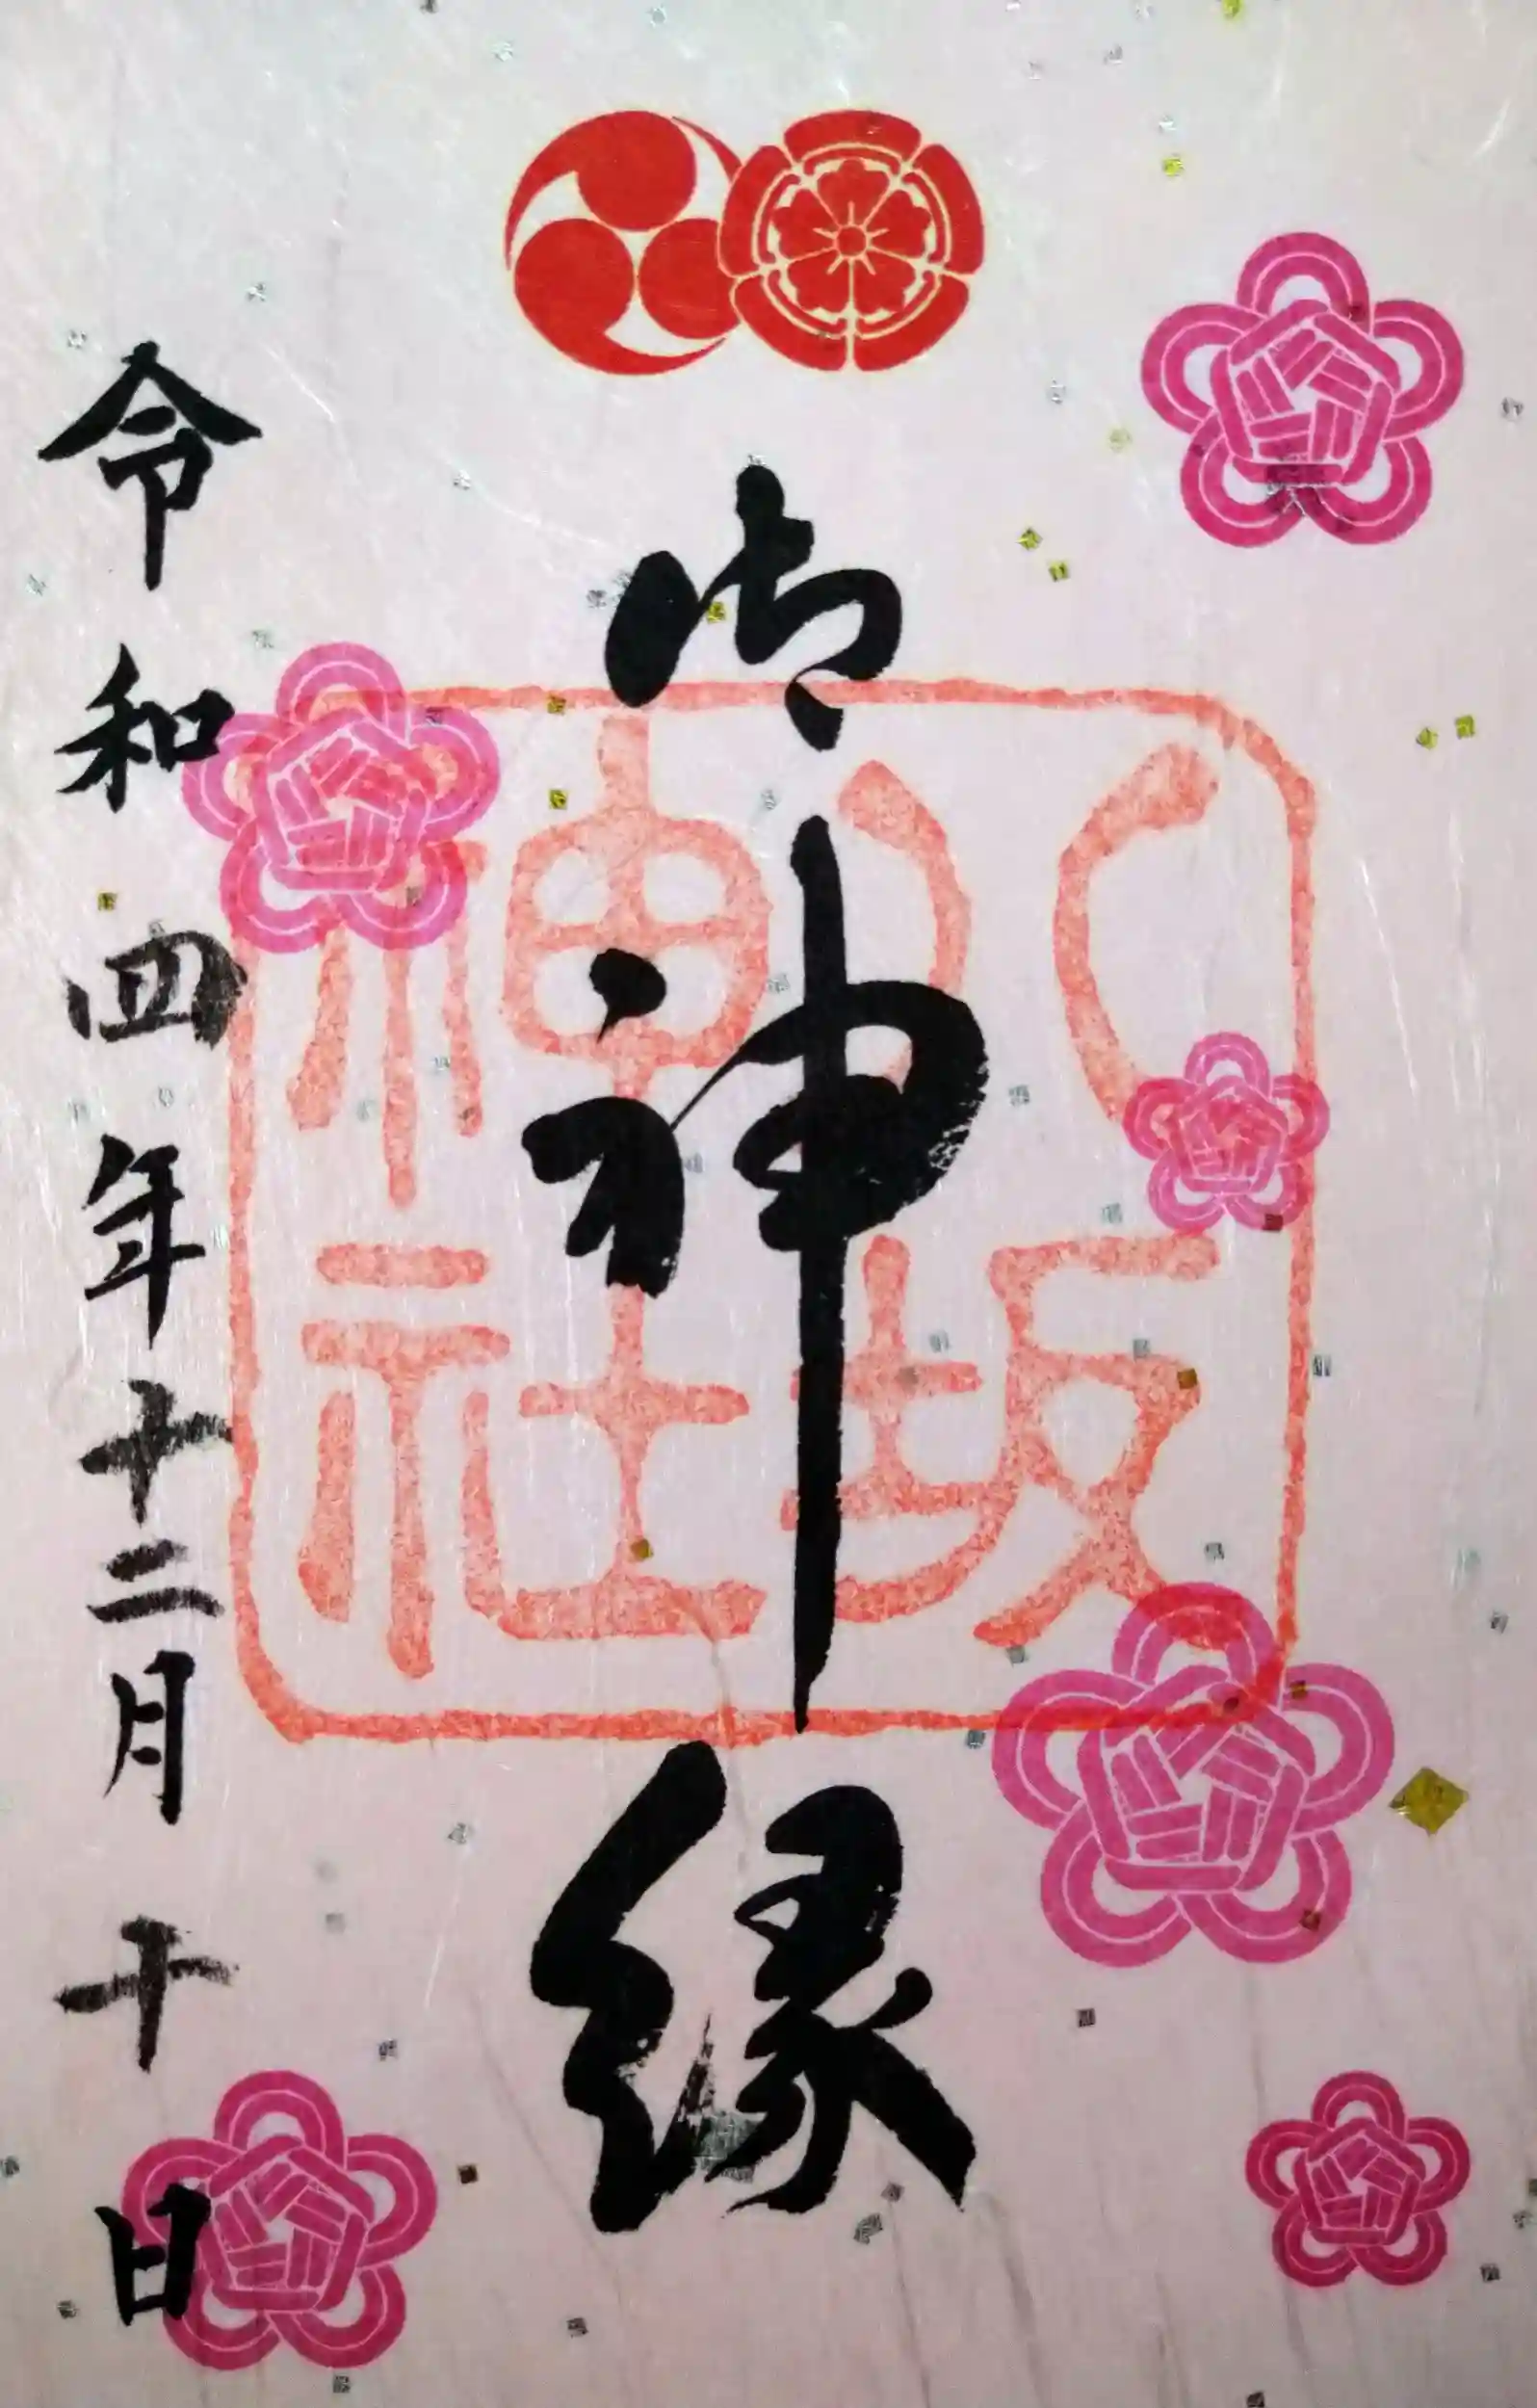 八坂
神社
御神縁
令和四年十二月十日